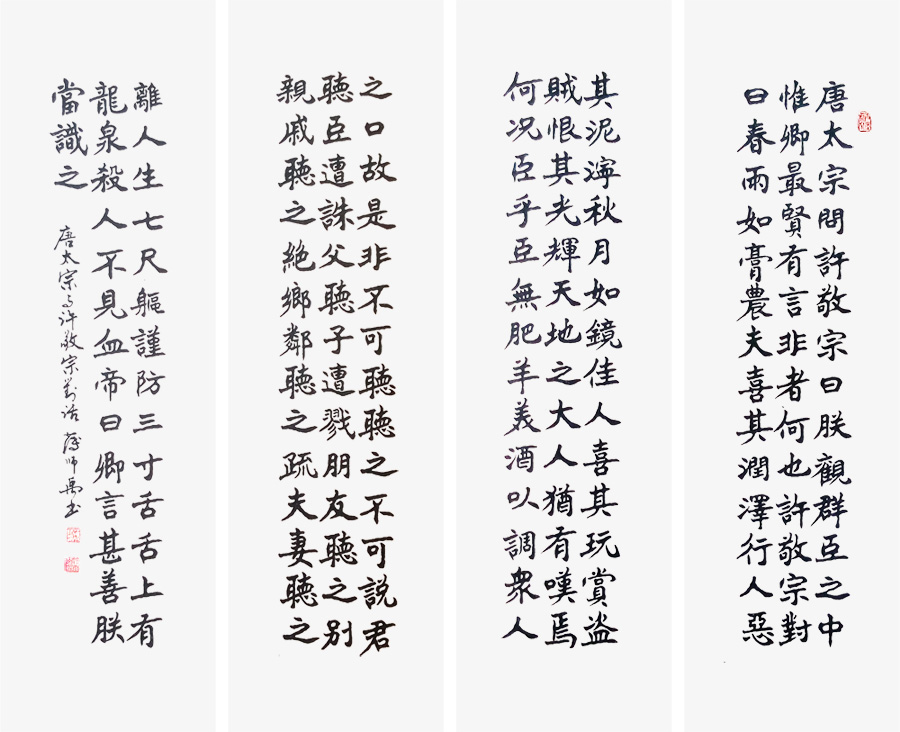 唐太宗問許敬宗曰朕觀群臣之中
惟卿最賢有言非者何也許敬宗對
曰春雨如膏農夫喜其潤澤行人惡
其泥濘秋月如鏡佳人喜其玩賞盗
賊恨其光輝天地之大人猶有嘆焉
何况臣乎臣無肥羊美酒以調衆人
之口故是非不可聽聽之不可説君
聽臣遭誅父聽子遭戮朋友聽之别
親戚聽之絶鄉鄰聽之疏夫妻聽之
離人生七尺軀謹防三寸舌舌上有
龍泉殺人不見血帝曰卿言甚善朕
當識之
唐太宗与许敬宗對话 師禹书